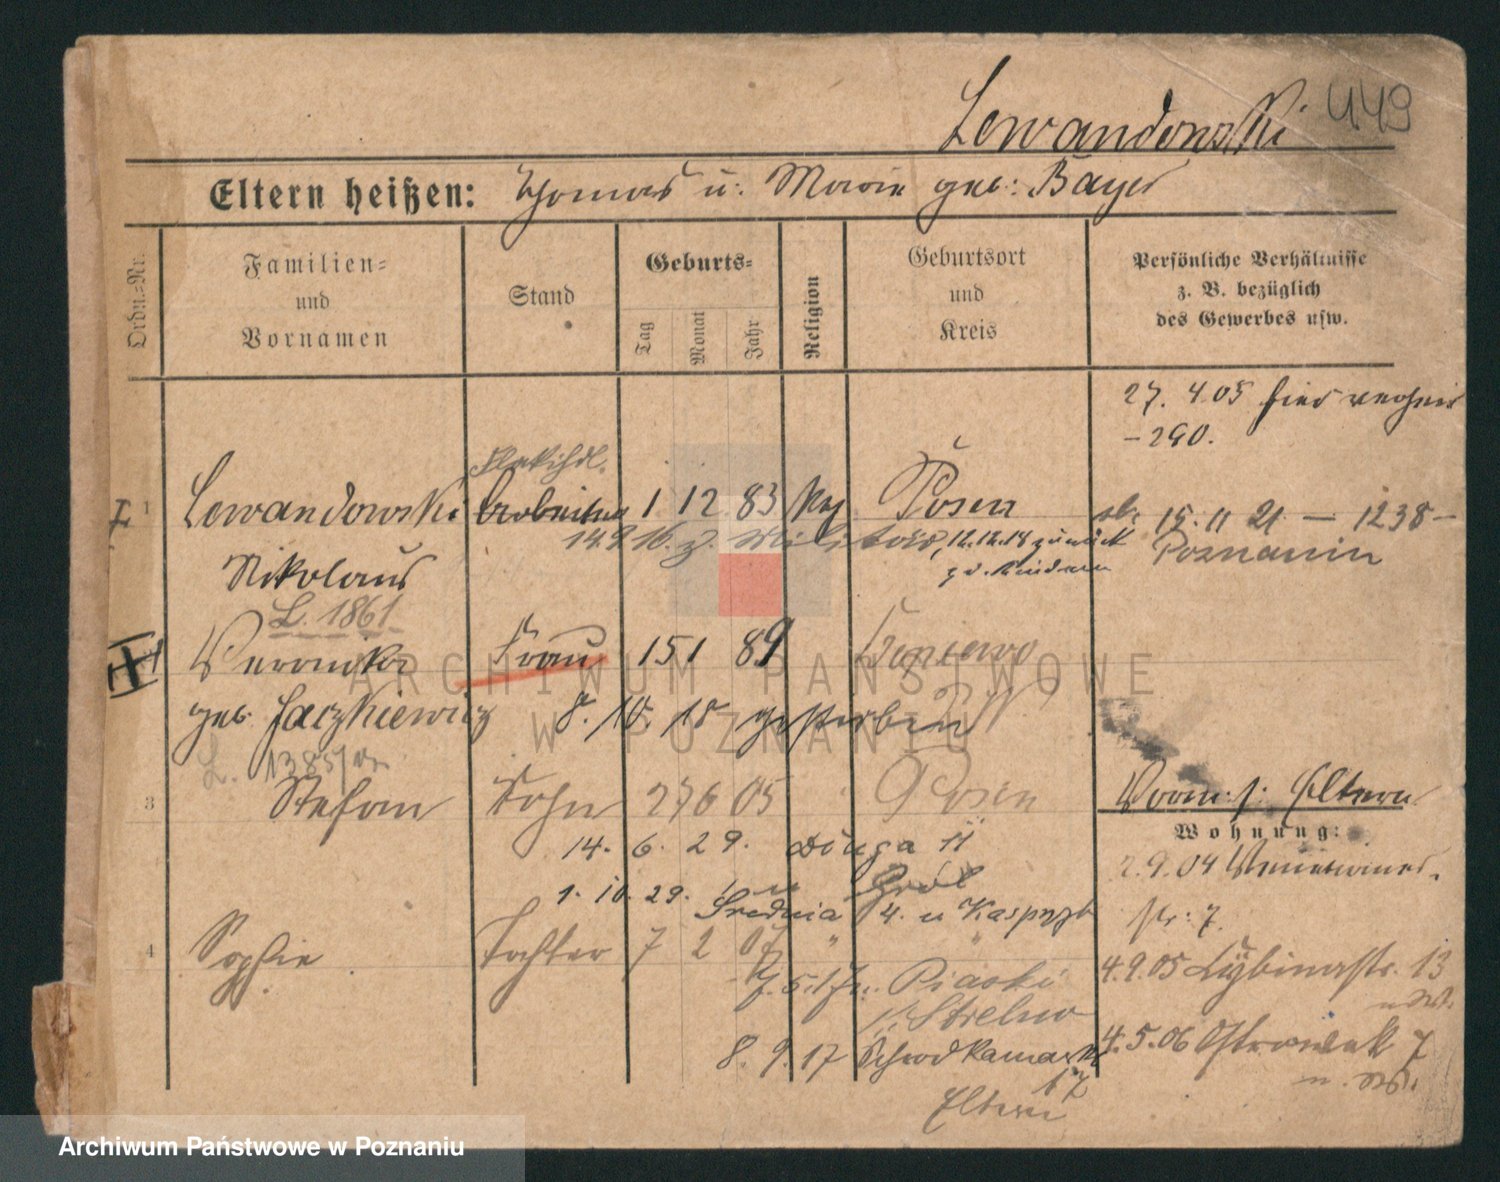 449
Lewandowski
Eltern heißen: Thomas u. Marie geb. Bayer
Ordn.-Nr.
Familien-
und
Vornamen
Stand
Geburts-
Tag
Monat
Jahr
Religion
Geburtsort
und
Kreis
Persönliche Verhältnisse
z. B. bezüglich
des Gewerbes usw.
27. 4. 05 hier verheir
- 290.
1 Lewandowski Arbeiter 1 12 83 Posen
15. 11 21 - 1238 -
14. 9 16. z. Militär, 12.12.18 zurück
Poznanin
Nikolaus
L. 1861
Veronika Frau 15 1 89
geb. Jaczkiewicz 8. 10. 18 gestorben
ARCHIWUM PAŃSTWOWE
W POZNANIU
3 Stefan Sohn 27 6 05 Posen
Vorm. s. Eltern
Wohnung:
14. 6. 29. Długa 11
2.9.04
str. 7.
1. 10. 29.
Średnia 4. u
4 Sophie Tochter 7 2 07 "
4.9.05 Lybinastr. 13
Piaski
Strelno
8. 9. 17
4.5.06 Ostrowek 7
Eltern
Archiwum Państwowe w Poznaniu